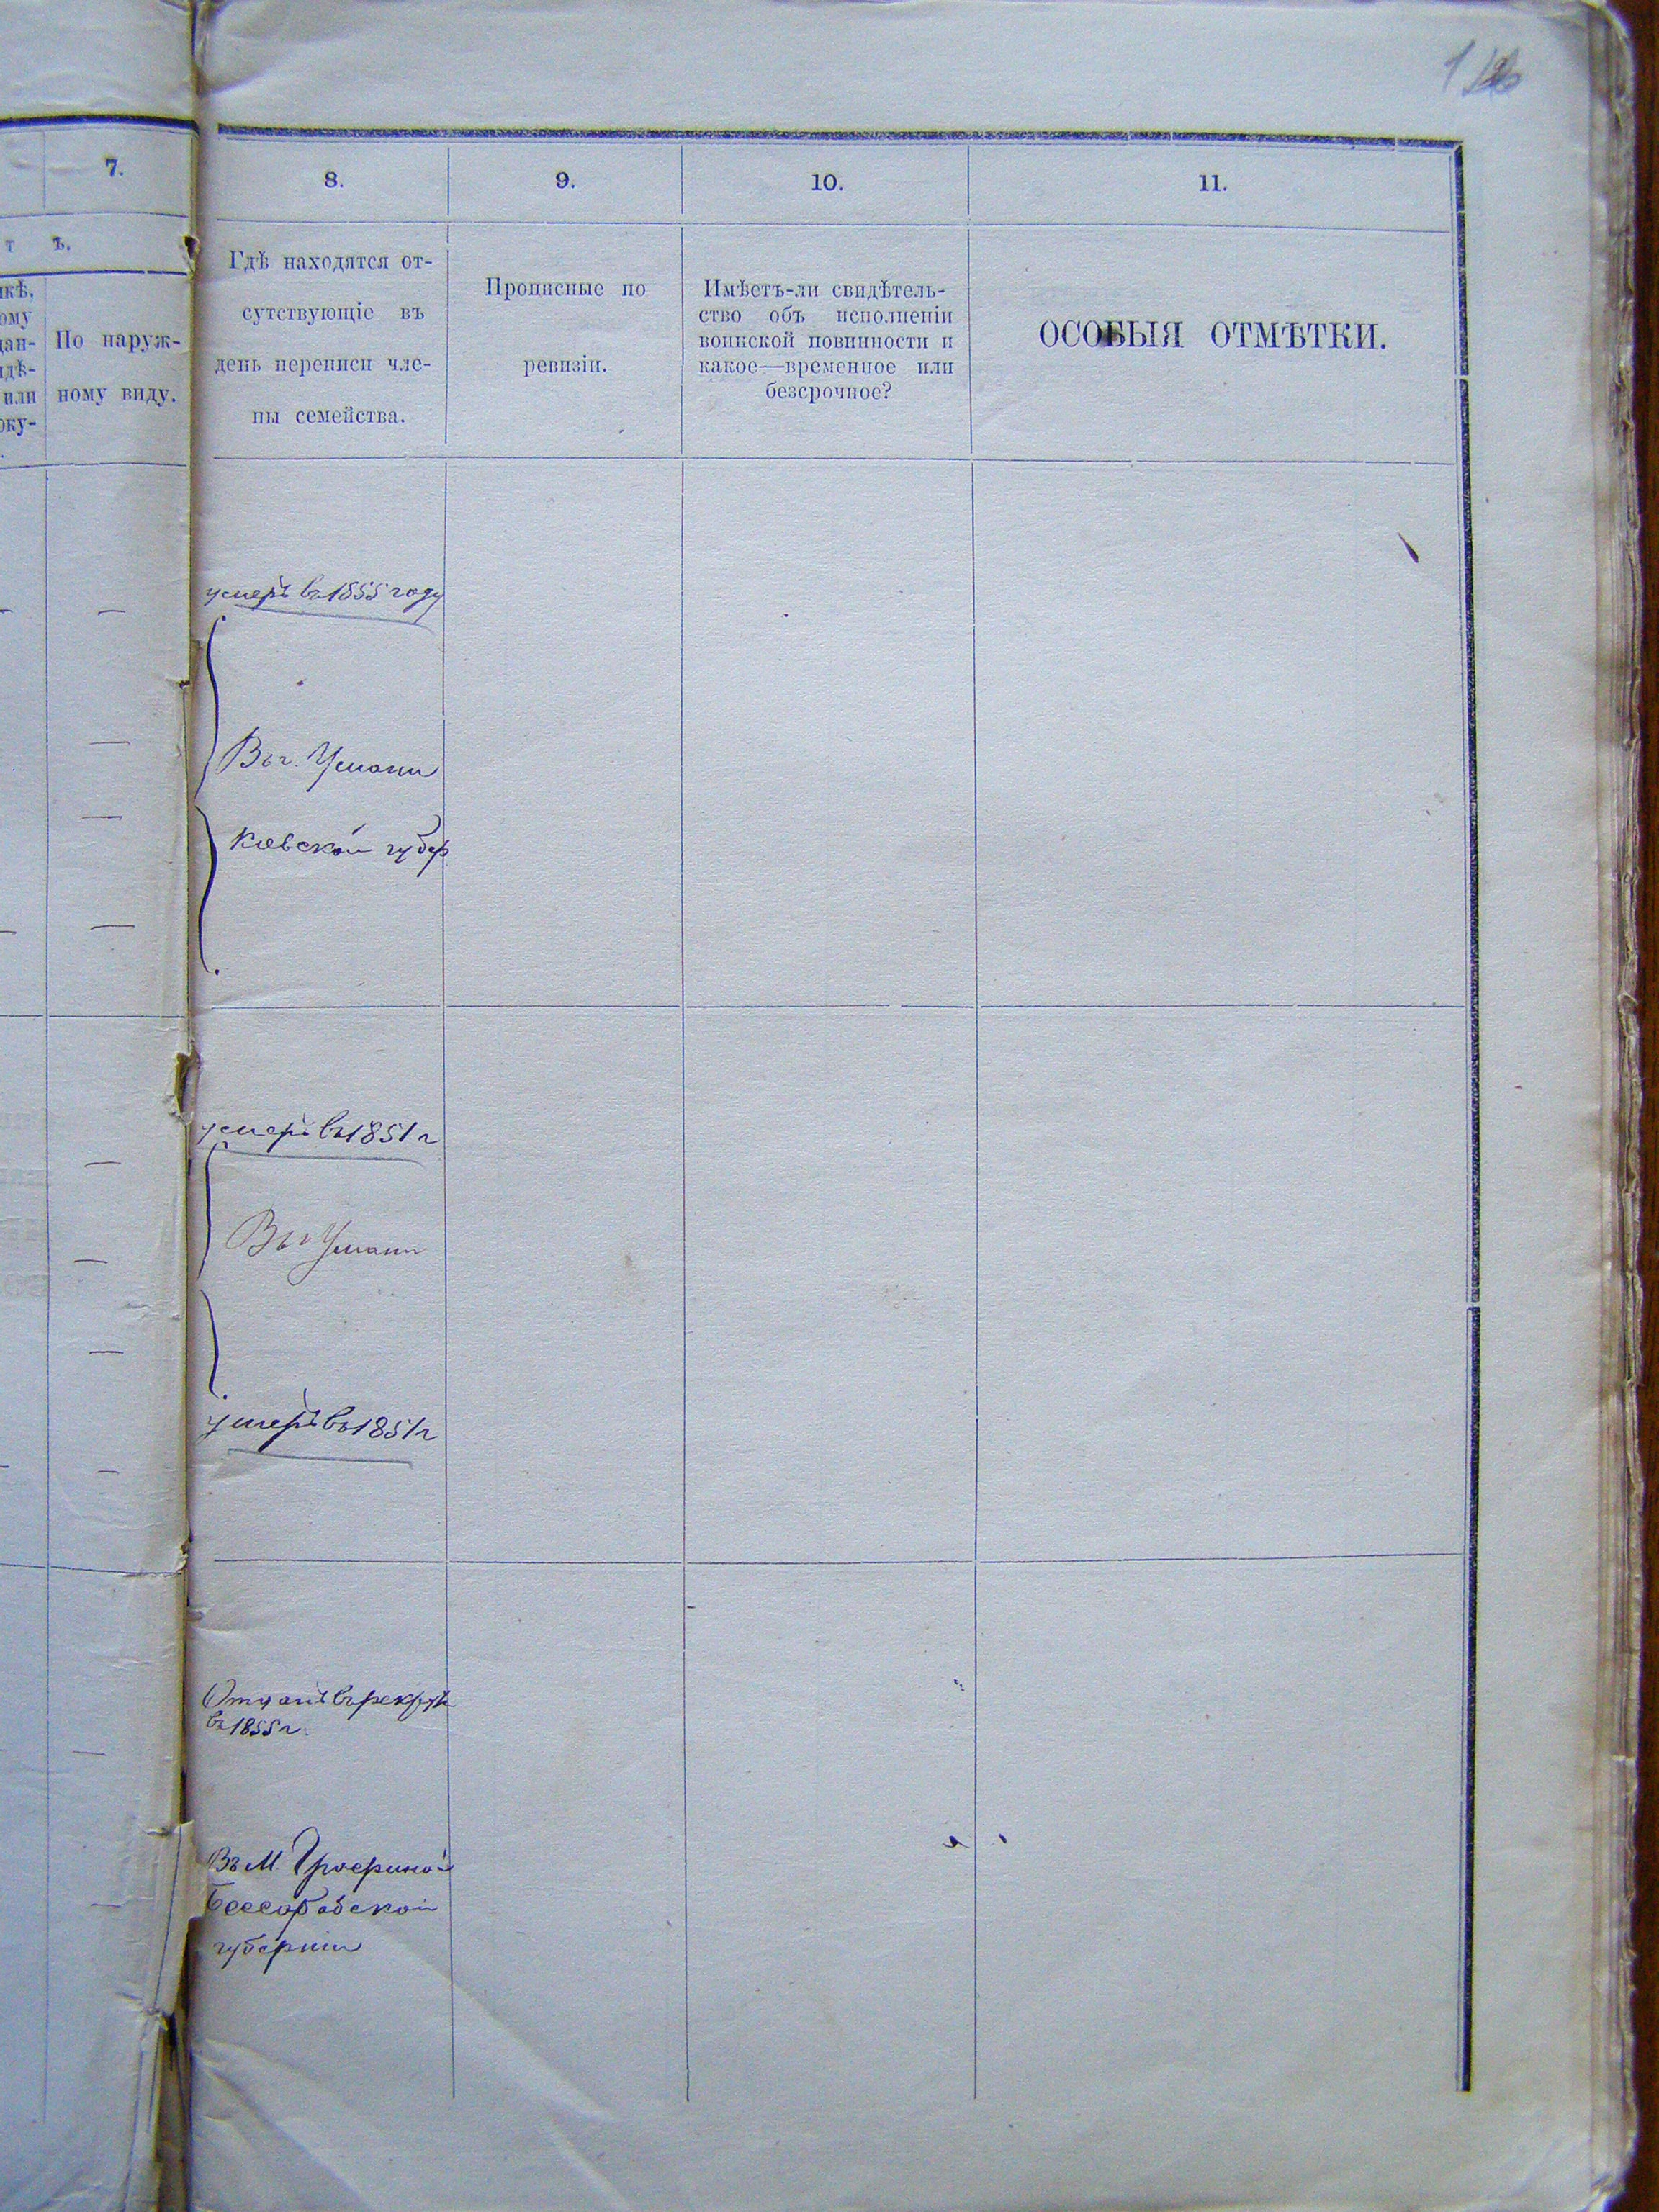 7.
8.
9.
10.
11.
т ѣ.
По наруж-
ному виду.
Гдѣ находятся от-
сутствующіе въ
день переписи чле-
ны семейства.
Прописные по
ревизіи.
Имѣетъ-ли свидѣтель-
ство объ исполненіи
воинской повинности и
какое—временное или
безсрочное?
ОСОБЫЯ ОТМѢТКИ.
умеръ въ 1855 году
Въ г. Умани
Кіевской губер
умеръ въ 1851 г
Въ г Умани
умеръ въ 1851 г
Отданъ въ рекруты
въ 1855 г.
Въ М.
Бессарабской
губерніи